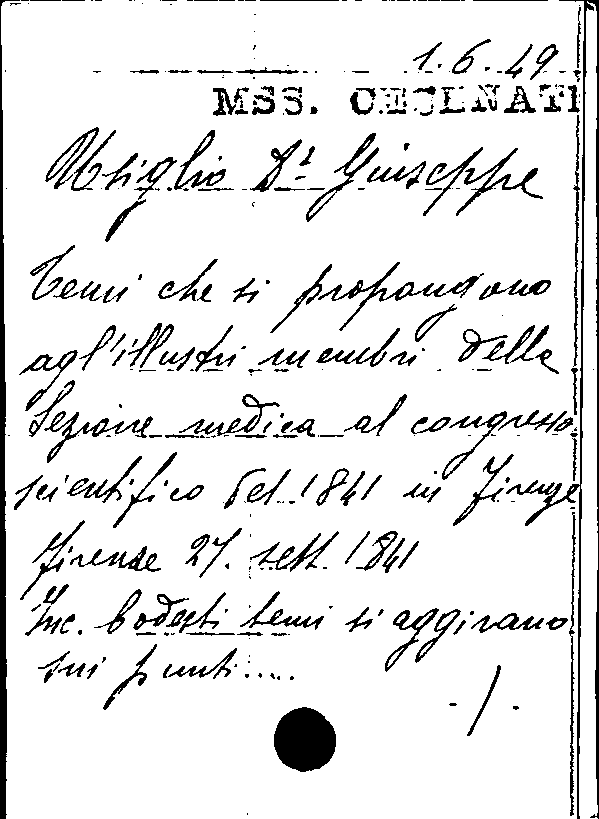 1.6.49
MSS. CESENATI
Usiglio Dr. Giuseppe
Temi che si propongono
agl'illustri membri della
Sezione medica al congresso
scientifico del 1841 in Firenze
Firenze 27. sett. 1841
Inc. Codesti temi si aggirano
sui punti.....
./.